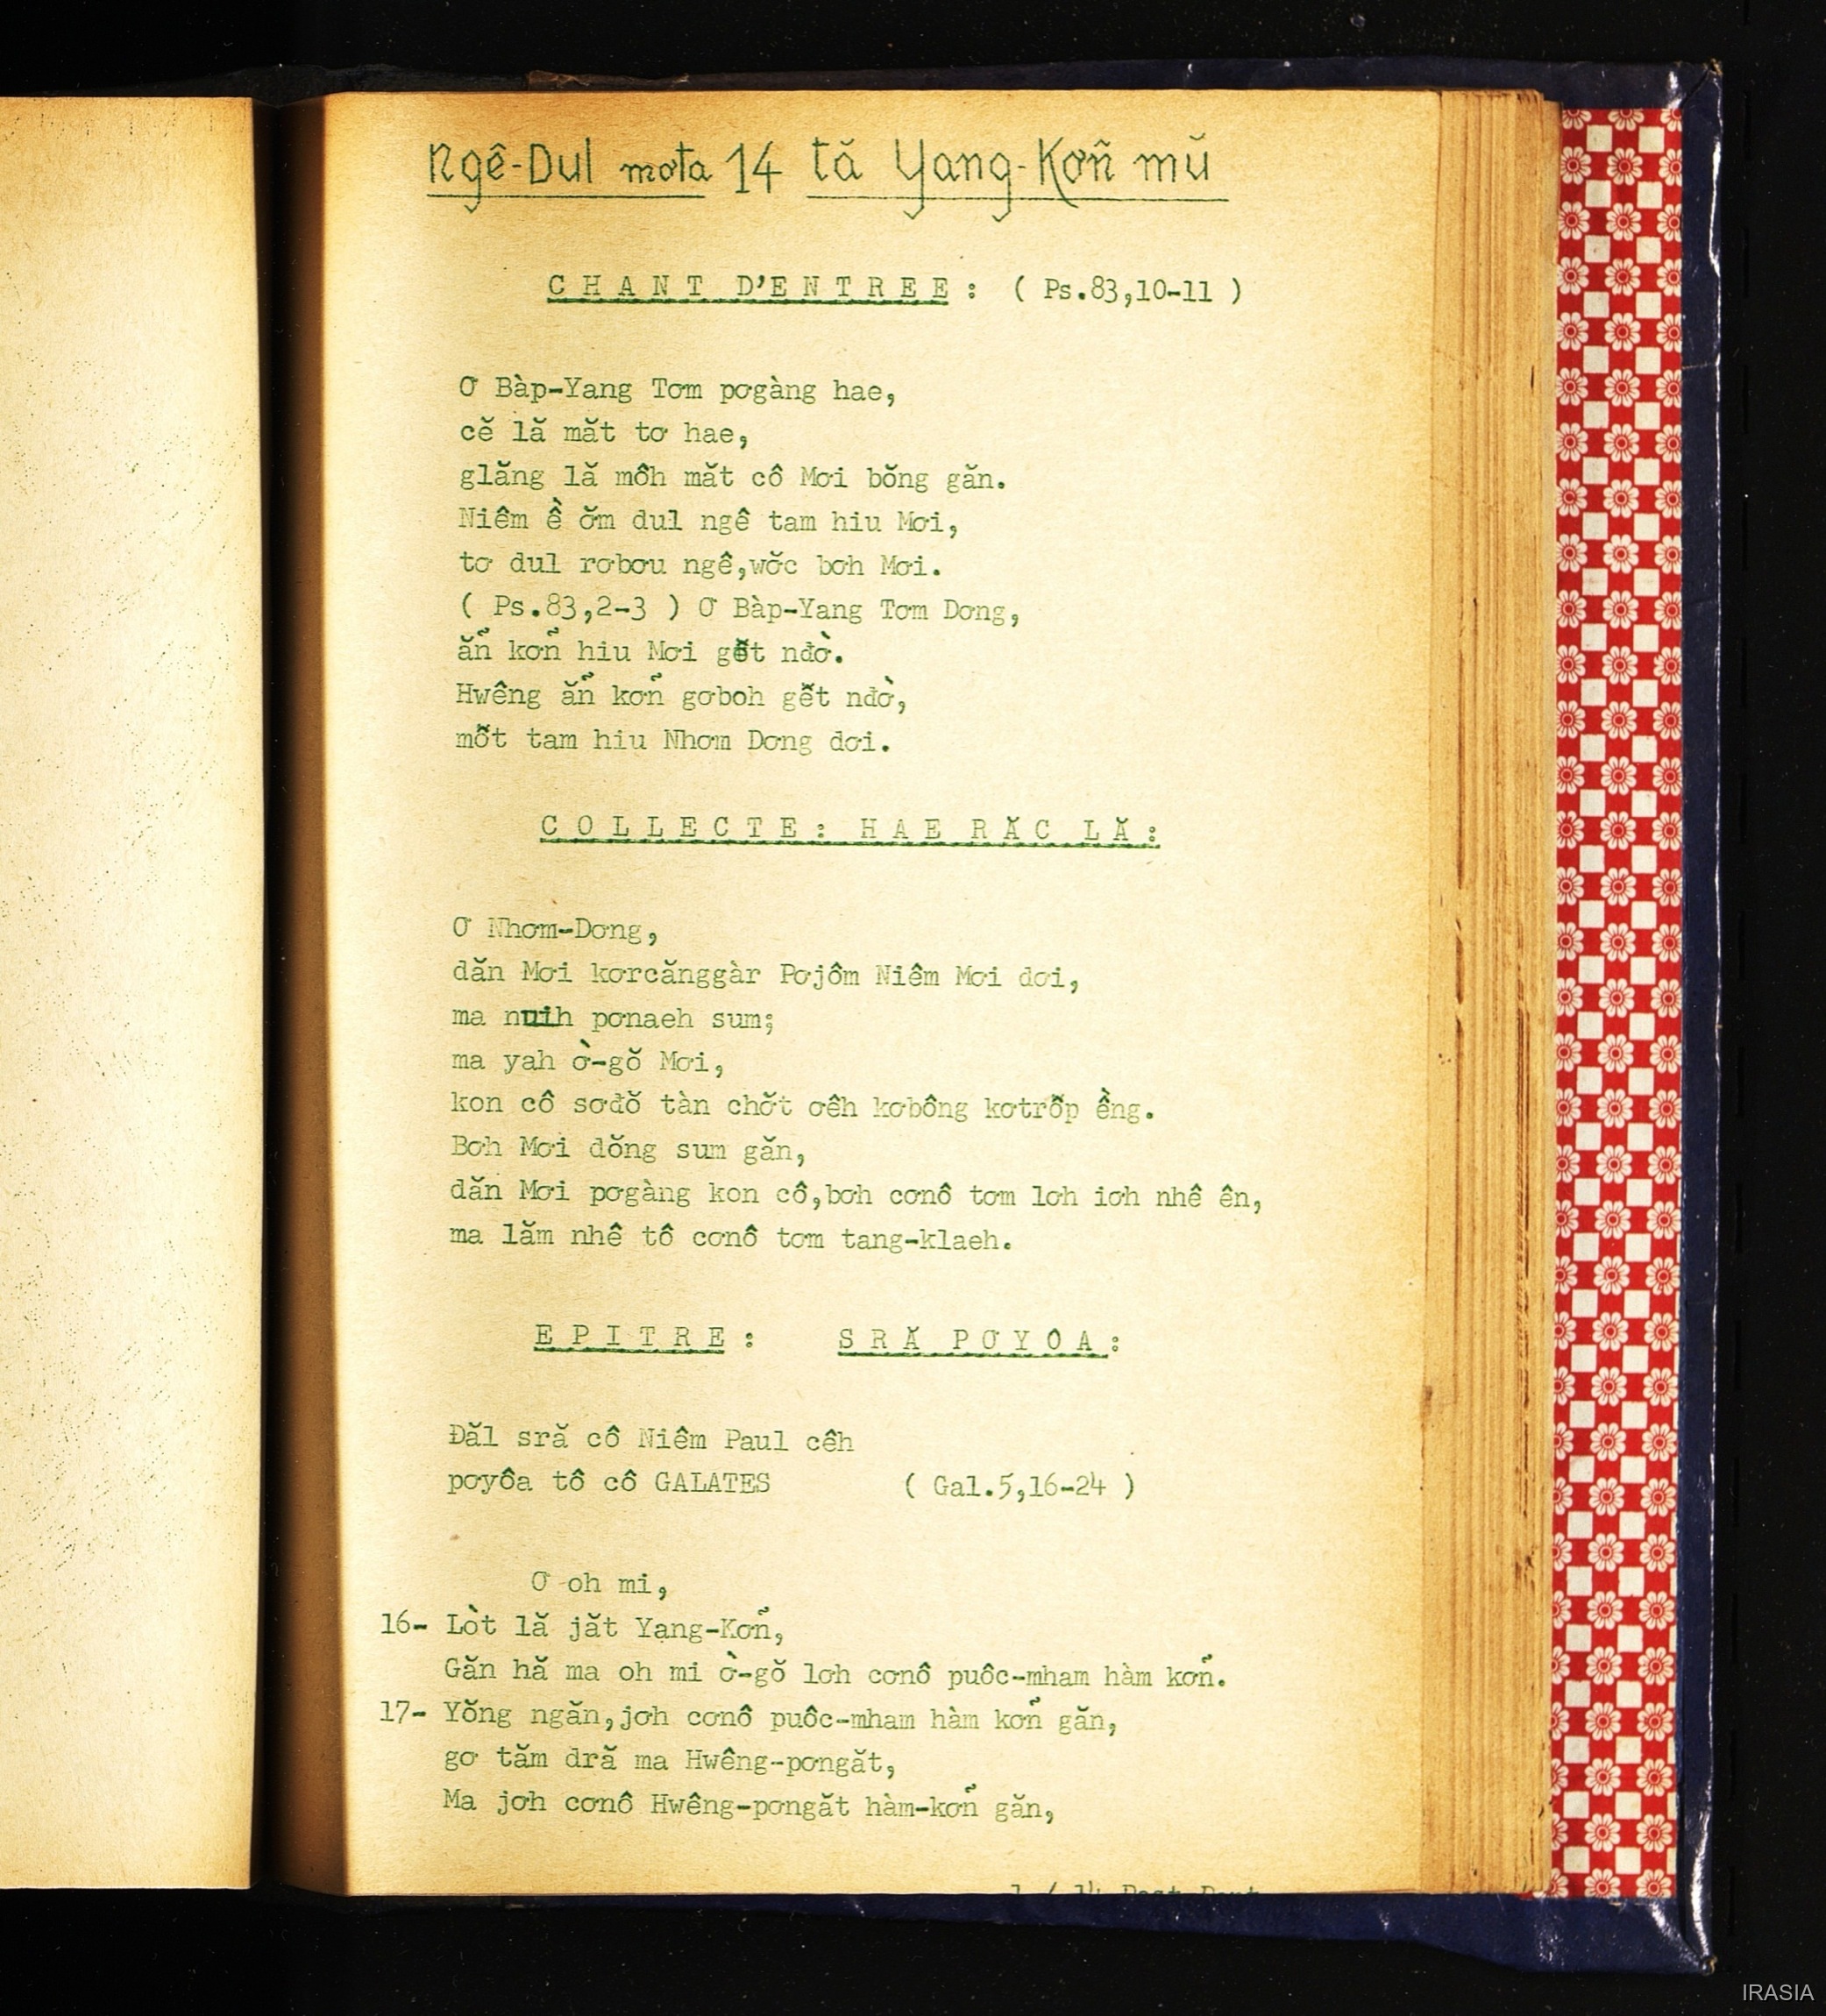 Ngê-Dul mơta 14 tă Yang-Kơñ mŭ
CHANT D'ENTREE : ( Ps.83,10-11 )
Ơ Bàp-Yang Tơm pơgàng hae,
cĕ lă măt tơ hae,
glăng lă môh măt cô Mơi bŏng găn.
Niêm ề ơ̆m dul ngê tam hiu Mơi,
tơ dul rơbơu ngê,wơ̆c bơh Mơi.
( Ps.83,2-3 ) Ơ Bàp-Yang Tơm Dơng,
ăn̉ kơn̉ hiu Mơi gêt̆ nđờ.
Hwêng ăn̉ kơn̉ gơboh gêt̆ nđờ,
môt̆ tam hiu Nhơm Dơng dơi.
COLLECTE: HAE RĂC LĂ:
Ơ Nhơm-Dơng,
dăn Mơi kơrcănggàr Pơjôm Niêm Mơi dơi,
ma nuih pơnaeh sum;
ma yah ờ-gŏ Mơi,
kon cô sơđŏ tàn chơ̆t ơêh kơbông kơtrôp̆ ềng.
Bơh Mơi dŏng sum găn,
dăn Mơi pơgàng kon cô,bơh cơnô tơm lơh iơh nhê ên,
ma lăm nhê tô cơnô tơm tang-klaeh.
EPITRE : SRĂ PƠYÔA:
Đăl sră cô Niêm Paul cêh
pơyôa tô cô GALATES ( Gal.5,16-24 )
Ơ oh mi,
16- Lòt lă jăt Yang-Kơn̉,
Găn hă ma oh mi ờ-gŏ lơh cơnô puôc-mham hàm kơn̉.
17- Yŏng ngăn,jơh cơnô puôc-mham hàm kơn̉ găn,
gơ tăm dră ma Hwêng-pơngăt,
Ma jơh cơnô Hwêng-pơngăt hàm-kơn̉ găn,
IRASIA